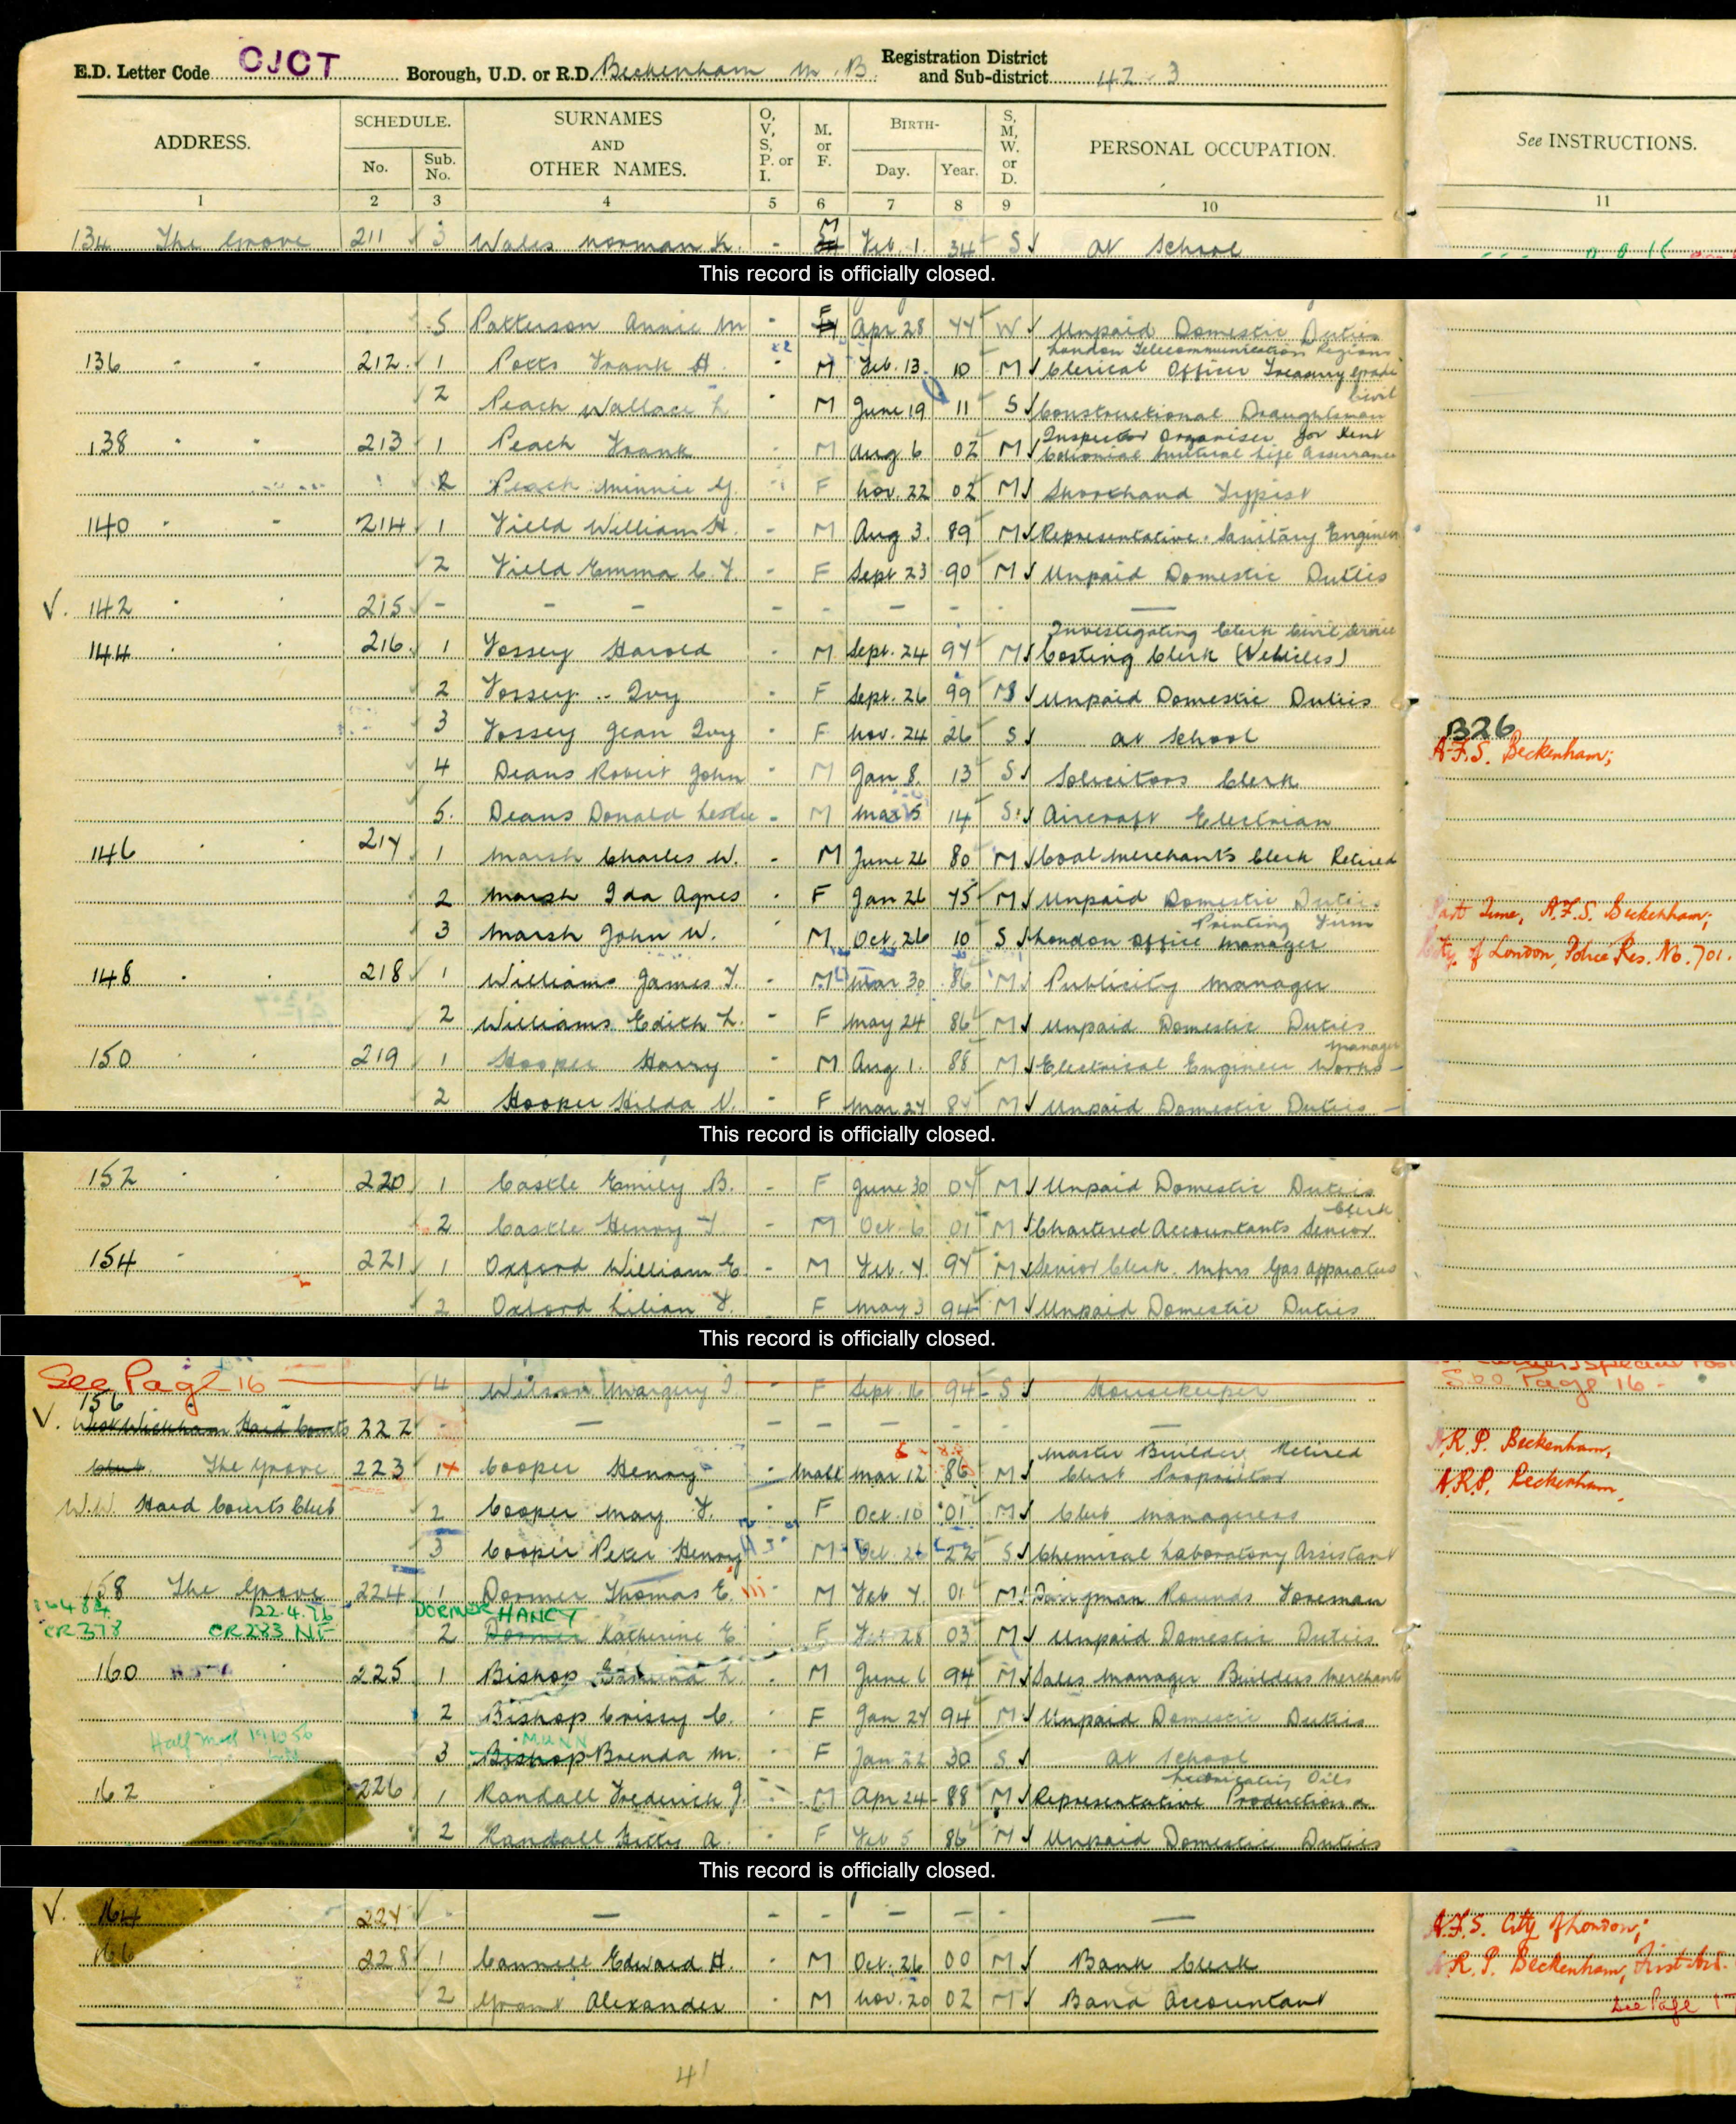 E.D. Letter Code CJCT Borough, U.D. or R.D. Beckenham M.B. Registration District and Sub-district 42 3
ADDRESS. SCHEDULE. No. Sub. No. SURNAMES AND OTHER NAMES. O, V, S, P. or I. M. or F. BIRTH- Day. Year. S, M, W. or D. PERSONAL OCCUPATION. See INSTRUCTIONS.
1 2 3 4 5 6 7 8 9 10 11
134 The Grove 211 3 Wales Norman K. - M Feb. 1. 34 S At School
This record is officially closed.
5 Patterson Annie M - F Apr 28 77 W Unpaid Domestic Duties
London Telecommunication Regions
136 " " 212 1 Potts Frank H. - M Feb. 13. 10 M Clerical Officer Treasury Grade
Civil
2 Peach Wallace L. - M June 19 11 S Constructional Draughtsman
Inspector Organiser for Kent
138 " " 213 1 Peach Frank - M Aug 6 02 M Colonial Mutual Life Assurance
2 Peach Minnie G. - F Nov. 22 02 M Shorthand Typist
140 " " 214 1 Field William H. - M Aug 3. 89 M Representative. Sanitary Engineer
2 Field Emma C. F. - F Sept 23 90 M Unpaid Domestic Duties
V. 142 " " 215 - - - - - - - - —
Investigating Clerk Civil Service
144 " " 216 1 Fossey Harold - M Sept. 24 97 M Costing Clerk (Vehicles)
2 Fossey Ivy - F Sept. 26 99 M Unpaid Domestic Duties
3 Fossey Jean Ivy - F Nov. 24 26 S At School
B26
4 Deans Robert John - M Jan 8. 13 S Solicitors Clerk A.F.S. Beckenham;
5. Deans Donald Leslie - M Mar 5 14 S Aircraft Electrian
146 " " 217 1 Marsh Charles W. - M June 26 80 M Coal Merchants Clerk Retired
2 Marsh Ida Agnes - F Jan 26 75 M Unpaid Domestic Duties
Printing Firm Part Time, A.F.S. Beckenham;
3 Marsh John W. M Oct. 26 10 S London Office Manager City of London, Police Res. No. 701.
148 " " 218 1 Williams James F. - M Mar 30 86 M Publicity Manager
2 Williams Edith L. - F May 24 86 M Unpaid Domestic Duties
Manager
150 " " 219 1 Hooper Harry - M Aug 1. 88 M Electrical Engineer Works
2 Hooper Hilda V. - F Mar 27 87 M Unpaid Domestic Duties
This record is officially closed.
152 " " 220 1 Castle Emily B. - F June 30 07 M Unpaid Domestic Duties
Clerk
2 Castle Henry F. - M Oct 6 01 M Chartered Accountants Senior
154 " 221 1 Oxford William E - M Feb. 7. 97 M Senior Clerk. Mfrs Gas Apparatus
2 Oxford Lilian F. F May 3 94 M Unpaid Domestic Duties
This record is officially closed.
See Page 16 4 Wilson Margery J. - F Sept. 16 94 S Housekeeper See Page 16 -
156
V. West Wickham Hard Courts 222 - — - - - - - —
Master Builder Retired A.R.P. Beckenham,
Club. The Grove 223 1 Cooper Henry - Male Mar 12 86 M Club Proprietor A.R.P. Beckenham,
W.W. Hard Courts Club 2 Cooper May F. F Oct. 10 01 M Club Manageress
3 Cooper Peter Henry M Oct. 26 22 S Chemical Laboratory Assistant
158 The Grove 224 1 Dormer Thomas E. M Feb 7 01 M Dairyman Rounds Foreman
22.4.76 DORMER HANCY
CR 378 CR283 NF 2 Dormer Katherine E. F Feb. 28 03 M Unpaid Domestic Duties
160 " 225 1 Bishop L. - M June 6 94 M Sales Manager Builders Merchants
2 Bishop Crissy C. - F Jan 27 94 M Unpaid Domestic Duties
MUNN
3 Bishop Brenda M. - F Jan 22 30 S At School
Lubricating Oils
162 " 226 1 Randall Frederick J. - M Apr 24 88 M Representative Production
2 Randall Kitty A. - F Feb 5 86 M Unpaid Domestic Duties
This record is officially closed.
V. 164 227 - — - - - - - —
A.F.S. City of London;
166 228 1 Cannell Edward H. - M Oct. 26 00 M Bank Clerk A.R.P. Beckenham, First Aid.
2 Grant Alexander - M Nov. 20 02 M Band Accountant See Page
41